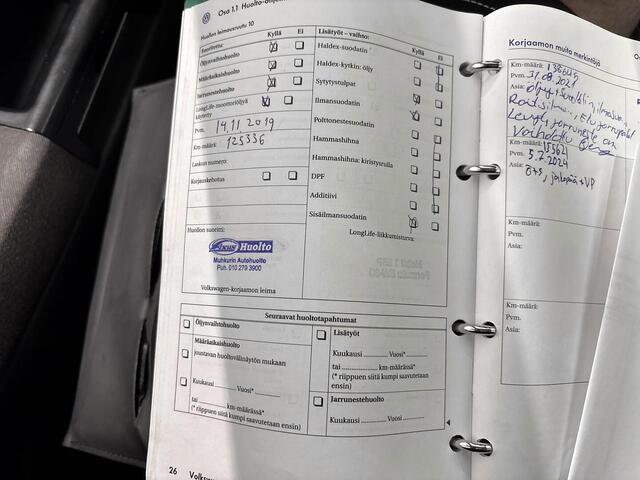 Osa 1.1 Huolto-ohje
Huollon leimausruutu 10
Suoritettu: Kyllä Ei
Öljynvaihtohuolto
Määräaikaishuolto
Jarrunestehuolto
LongLife-moottoriöljyä
käytetty
Pvm. 14.11.2019
Km-määrä: 125336
Laskun numero:
Korjauskehotus
Huollon suoritti:
Huolto
Muhkurin Autohuolto
Puh. 010 279 3900
Volkswagen-korjaamon leima
Lisätyöt – vaihto: Kyllä Ei
Haldex-suodatin
Haldex-kytkin: öljy
Sytytystulpat
Ilmansuodatin
Polttonestesuodatin
Hammashihna
Hammashihna: kiristysrulla
DPF
Additiivi
Sisäilmansuodatin
LongLife-liikkumisturva:
Seuraavat huoltotapahtumat
Öljynvaihtohuolto
Määräaikaishuolto
joustavan huoltovälinäytön mukaan
Kuukausi Vuosi*
tai km-määrässä*
(* riippuen siitä kumpi saavutetaan ensin)
Lisätyöt
Kuukausi Vuosi*
tai km-määrässä*
(* riippuen siitä kumpi saavutetaan
ensin)
Jarrunestehuolto
Kuukausi Vuosi
26 Volksw
Korjaamon muita merkintöjä
Km-määrä:
Pvm. 31.08.2021
Asia:
Vaihdettu
Km-määrä: 155621
Pvm. 5.7.2024
Asia:
Km-määrä:
Pvm.
Asia:
Km-määrä:
Pvm.
Asia: